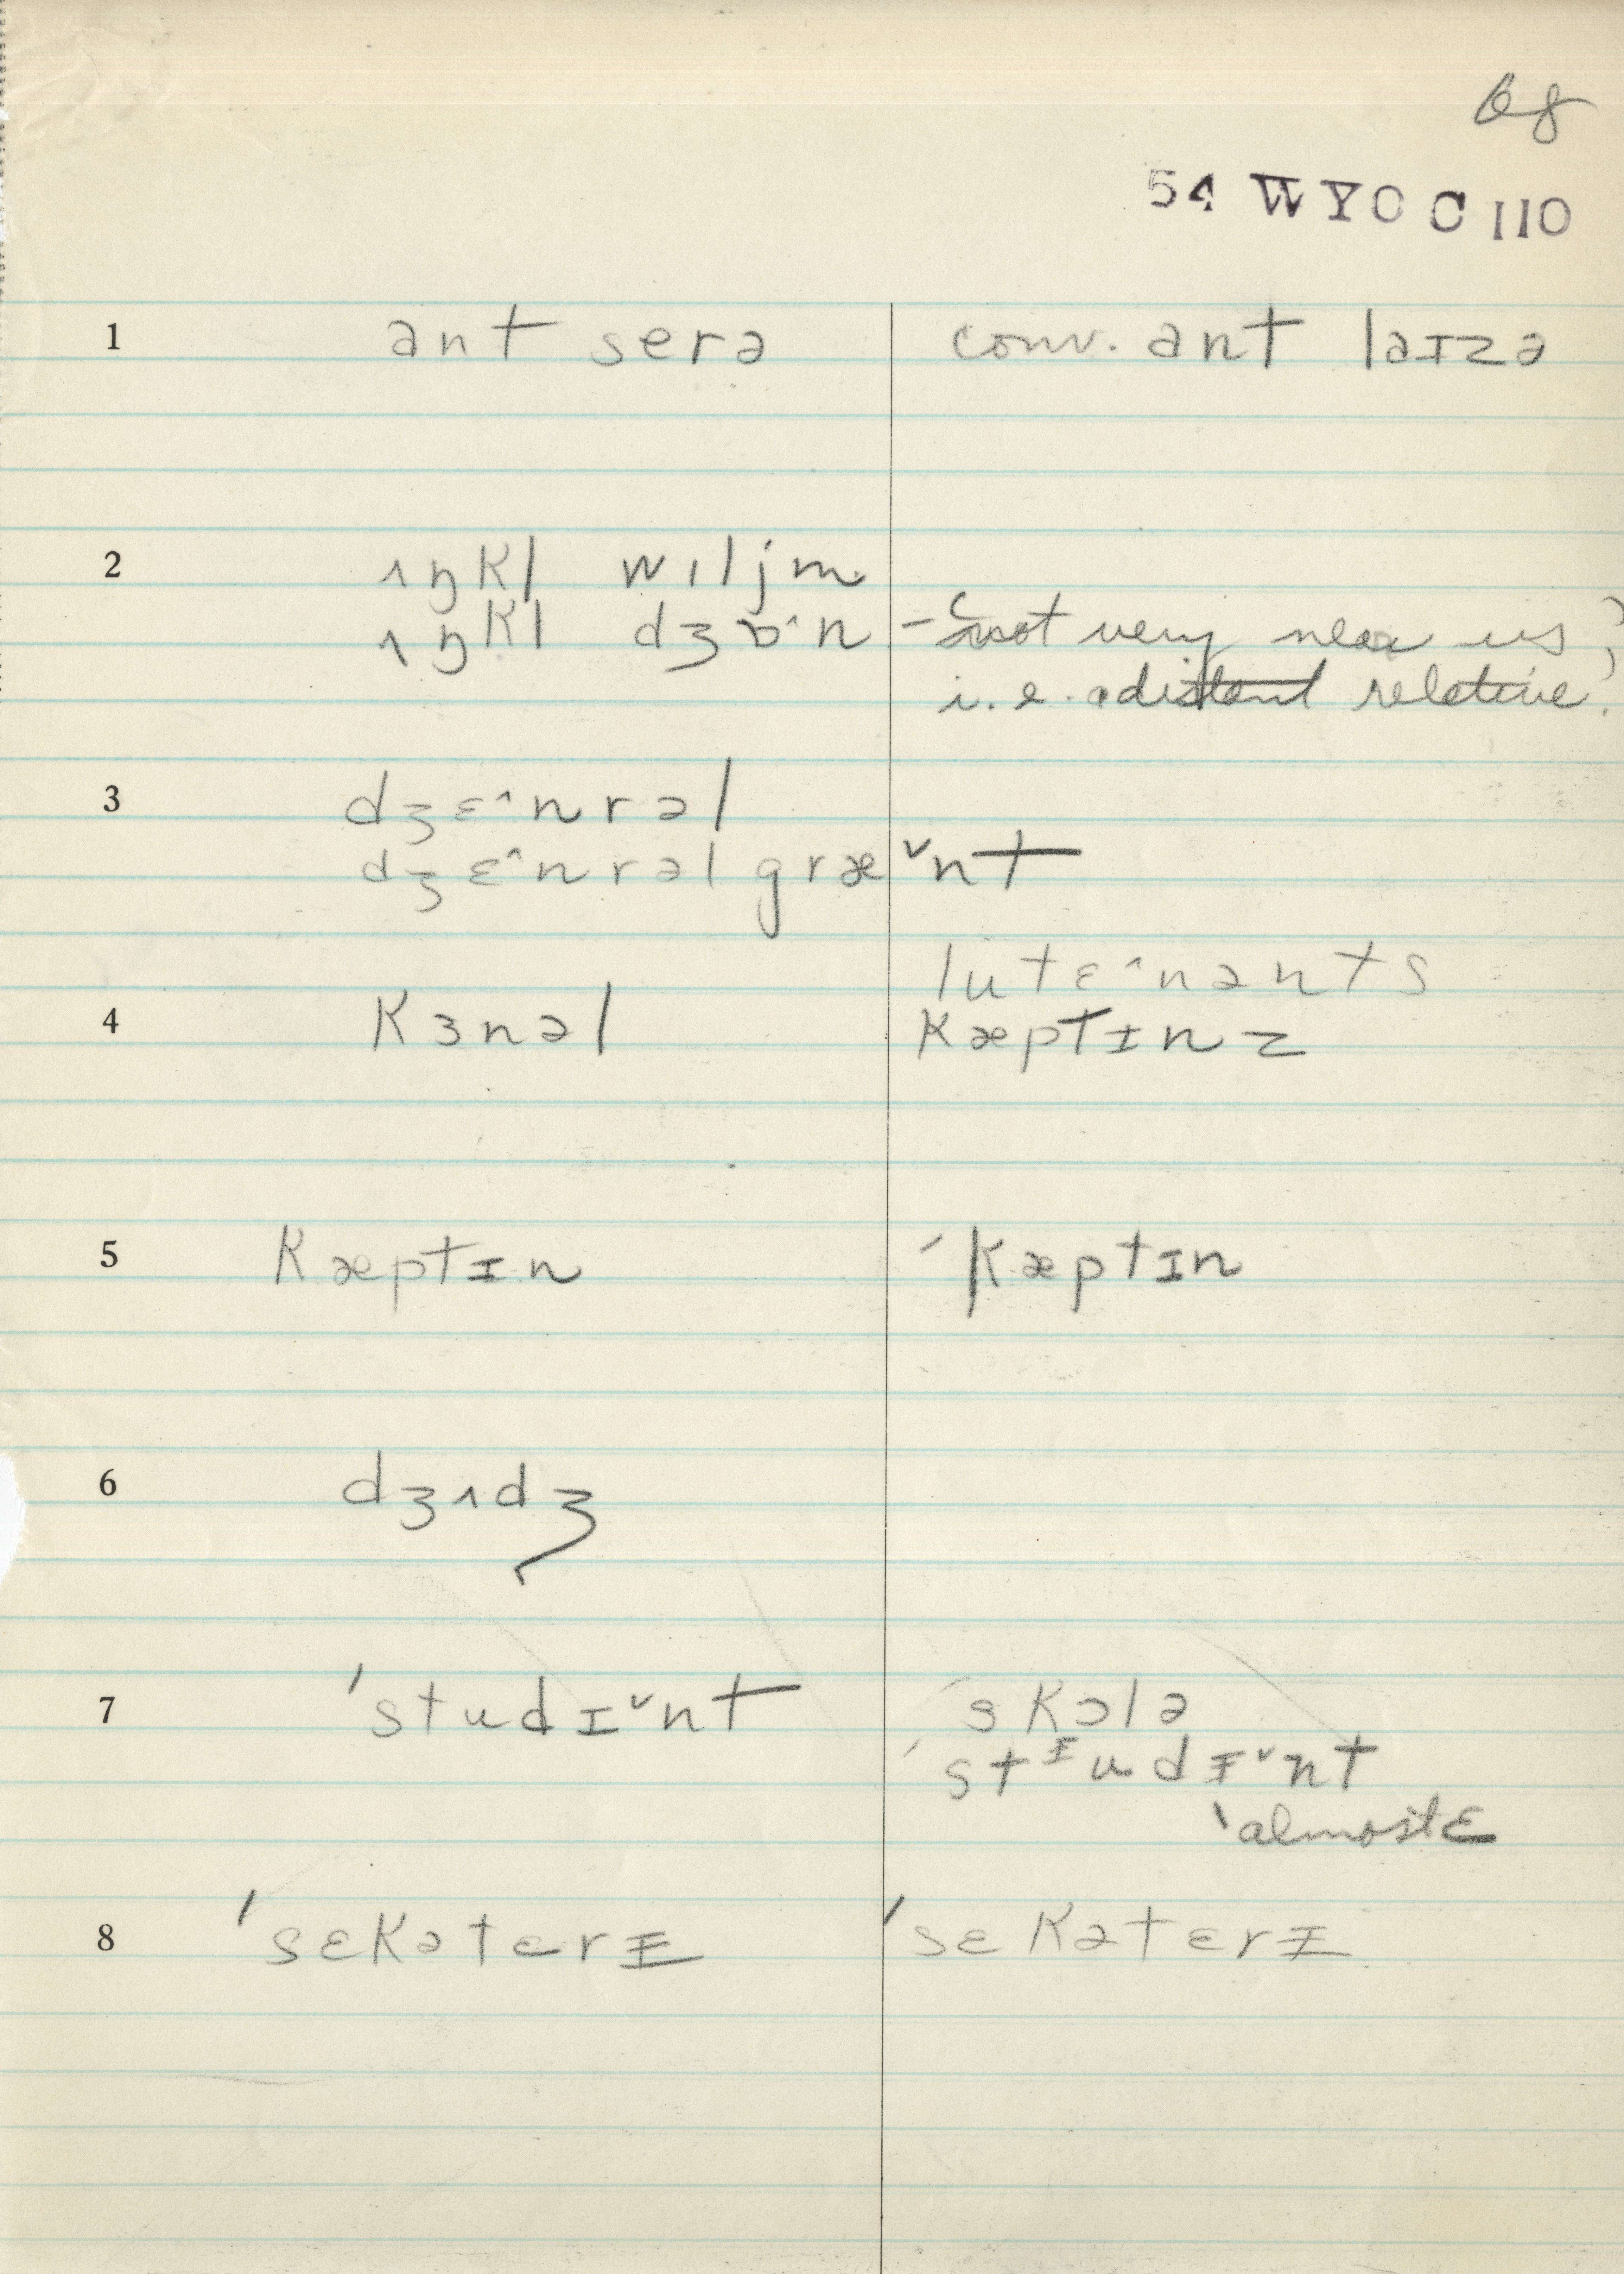 68
54 WYO C 110
1 ant serə conv. ant laɪzə
2 ʌŋkl wɪljm
ʌŋkl dʒɒ^n – not very near us,
i.e. a distant relative.
3 dʒɛ^nrəl
dʒɛ^nrəl græˇnt
lutɛ^nənts
4 kɜnəl kæptɪnz
5 kæptɪn ˊkæptɪn
6 dʒʌdʒ
7 ˈstudɪˇnt ˈskɔlə
ˈstᵻudᵻˇnt
almost ɛ
8 ˈsɛkətɛrᵻ ˈsɛkətɛrᵻ